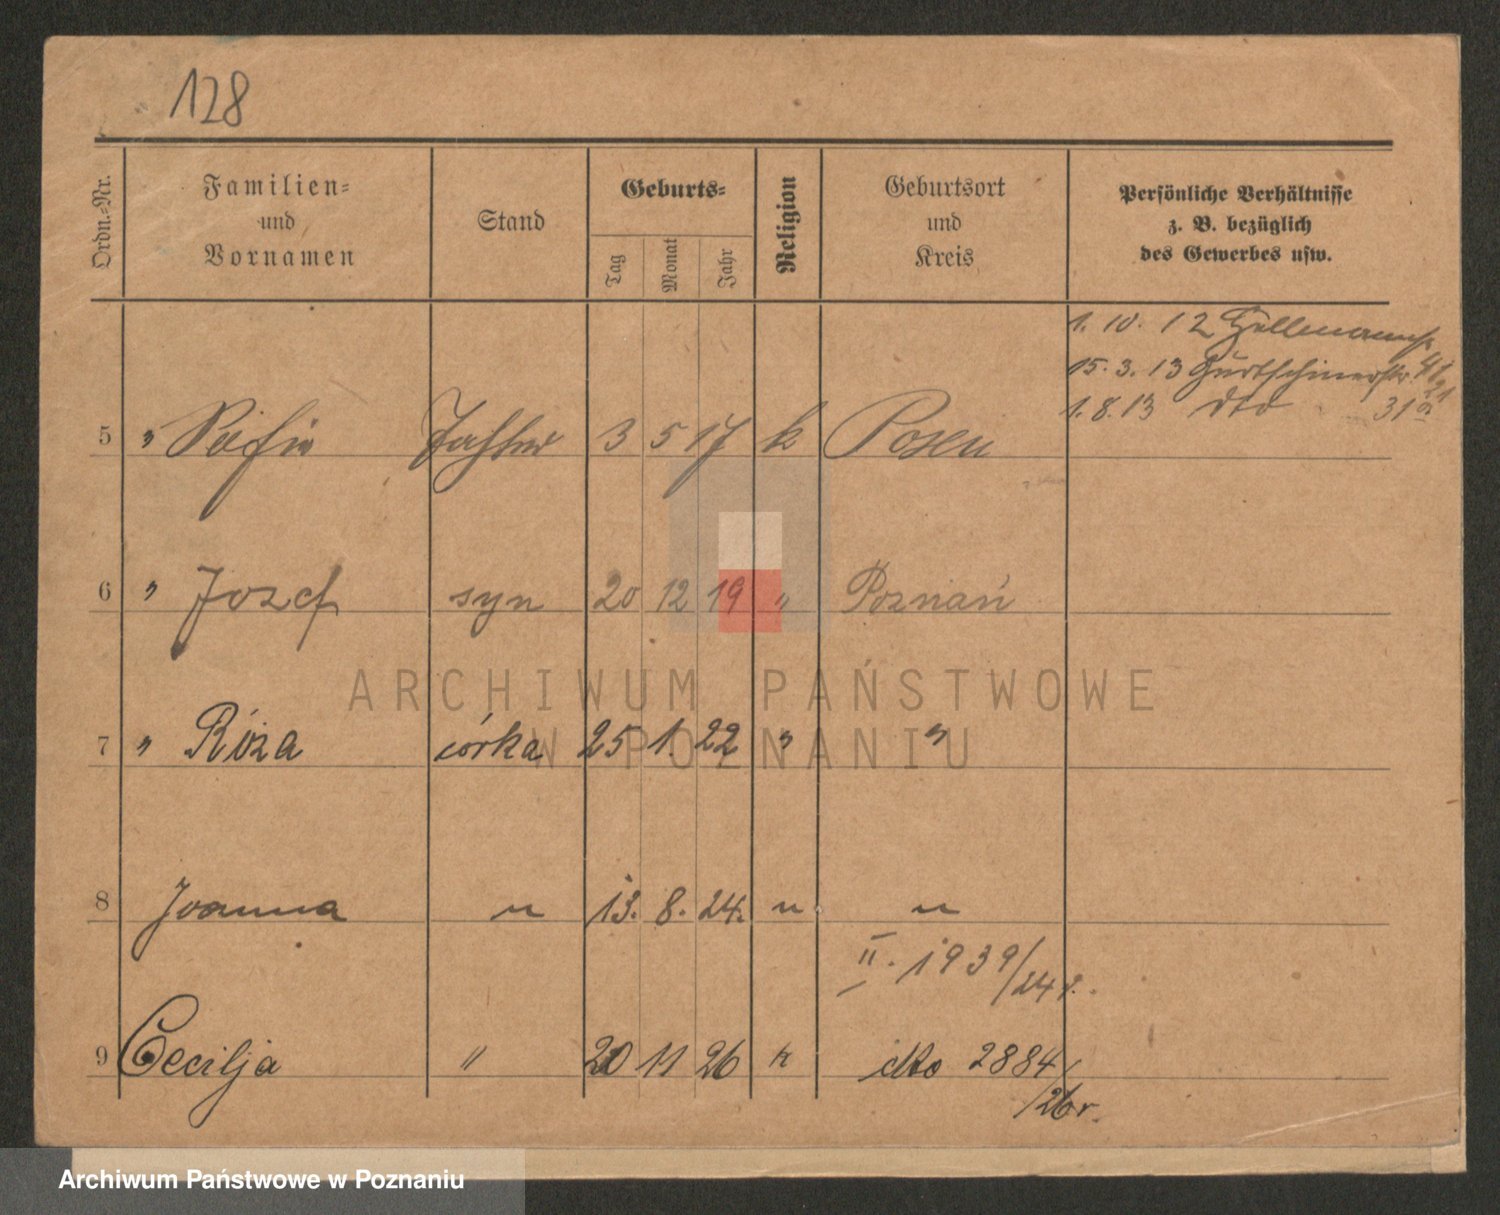 128
Ordn.-Nr.
Familien-
und
Vornamen
Stand
Geburts-
Tag
Monat
Jahr
Religion
Geburtsort
und
Kreis
Persönliche Verhältnisse
z. B. bezüglich
des Gewerbes usw.
1. 10. 12
15. 3. 13 41
21
1. 8. 13 dto 31a
5 " Sofie Tochter 3 5 17 k Posen
6 " Jozef syn 20 12 19 " Poznań
ARCHIWUM PAŃSTWOWE
W POZNANIU
7 " Róża córka 25 1. 22 " "
8 Joanna " 13. 8. 24. " "
II. 1939/24 r.
9 Cecilja " 20 11 26 k dto 2884
/26 r.
Archiwum Państwowe w Poznaniu